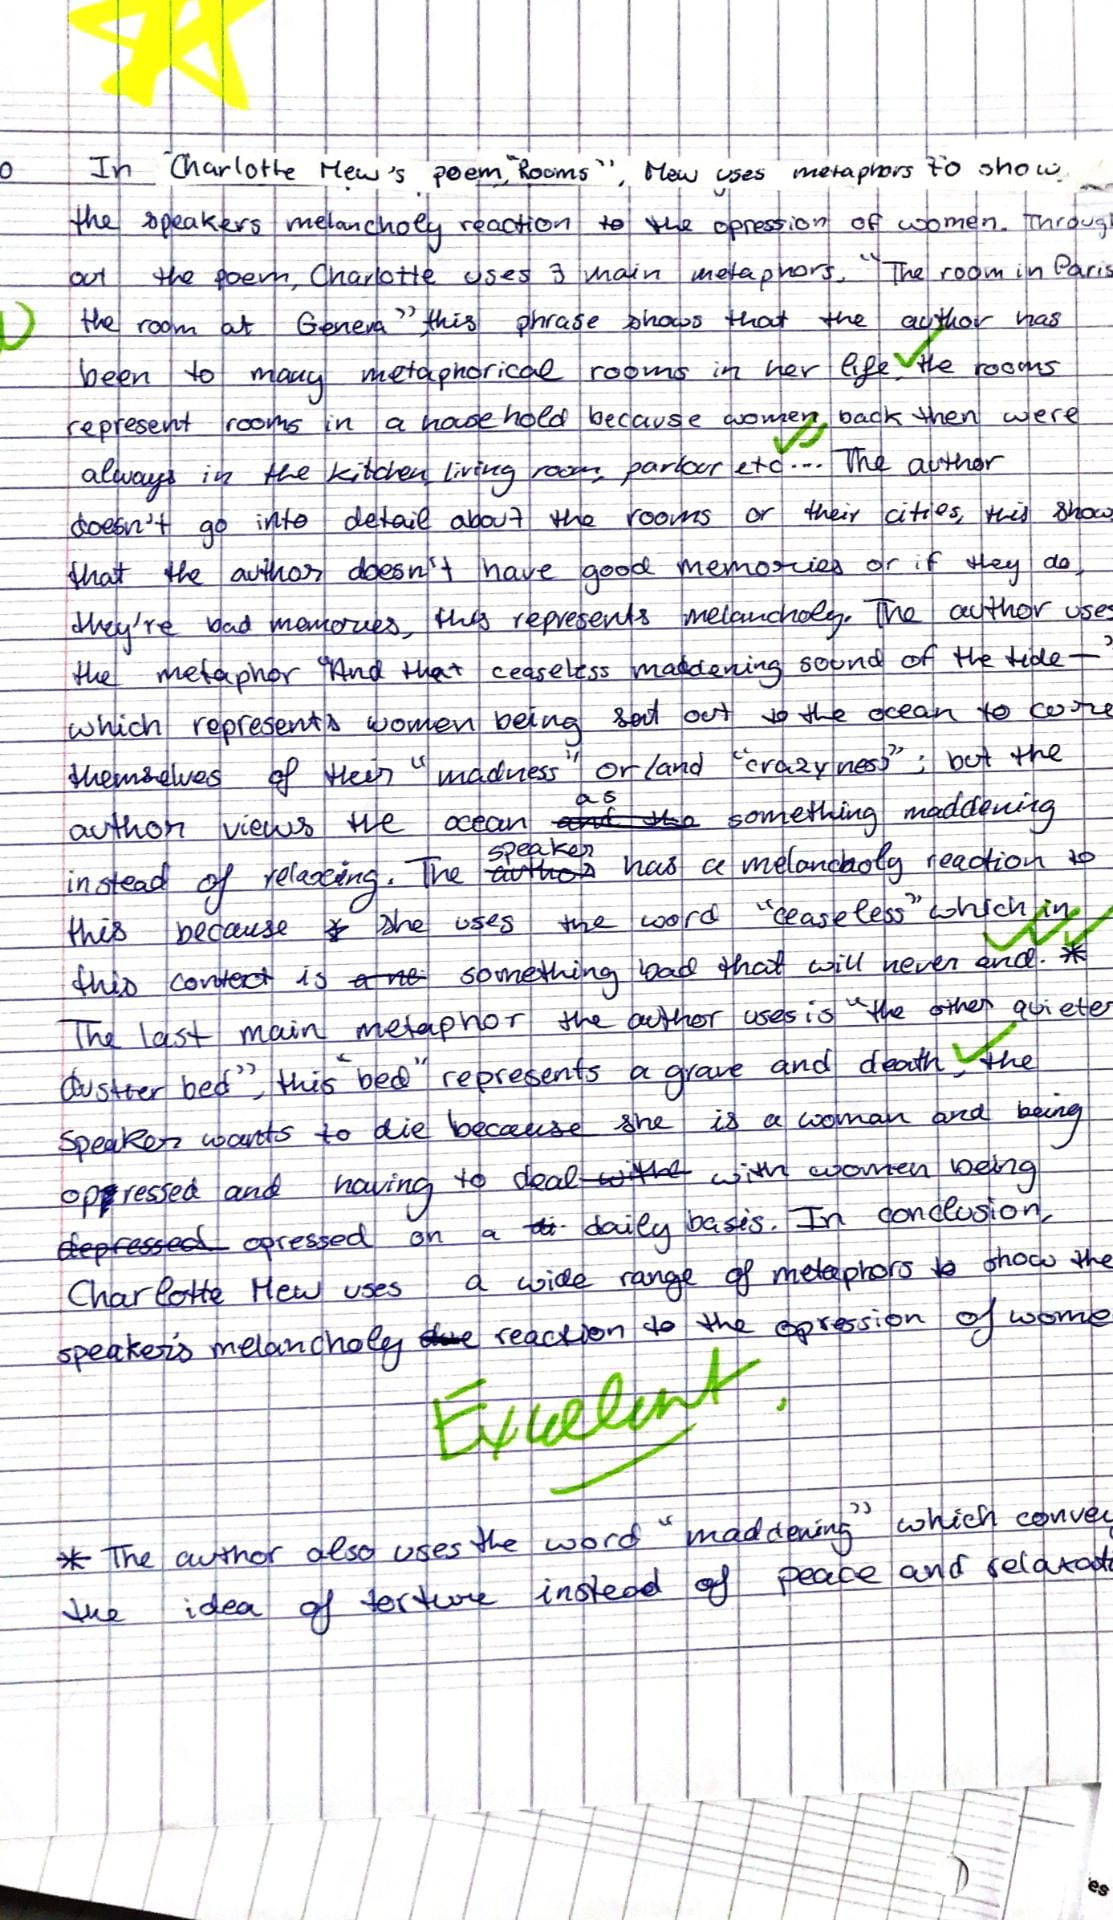 In Charlotte Mew's poem, "Rooms", Mew uses metaphors to show
the speakers melancholy reaction to the opression of women. Throug
out the poem, Charlotte uses 3 main metaphors. "The room in Paris
the room at Geneva" this phrase shows that the author has
been to many metaphorical rooms in her life, the rooms
represent rooms in a household because women, back then were
always in the kitchen, living room, parlour etc... The author
doesn't go into detail about the rooms or their cities, this show
that the author doesn't have good memories or if they do,
they're bad memories, this represents melancholy. The author uses
the metaphor "And that ceaseless maddening sound of the tide—"
which represents women being sent out to the ocean to
themselves of their "madness" or/and "crazyness"; but the
as
author views the ocean and the something maddening
speaker
instead of relaxing. The author has a melancholy reaction to
this because she uses the word "ceaseless" which in
this context is something bad that will never end. *
The last main metaphor the author uses is "the other quieter
dustier bed", this "bed" represents a grave and death, the
speaker wants to die because she is a woman and being
oppressed and having to deal with women being
depressed opressed on a daily basis. In conclusion,
Charlotte Mew uses a wide range of metaphors to show the
speaker's melancholy due reaction to the opression of wome
Excellent.
* The author also uses the word "maddening" which convey
the idea of torture instead of peace and relaxat
es